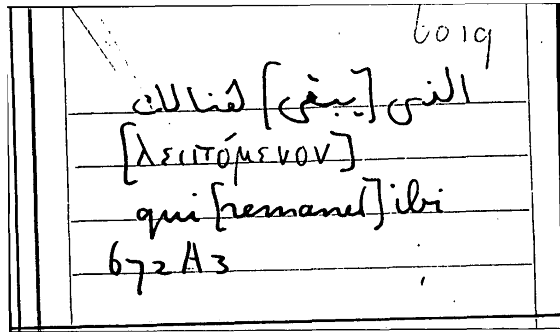 6019
الذى [يبقى] هنالك
[λειπόμενον]
qui [remanet] ibi
672A3